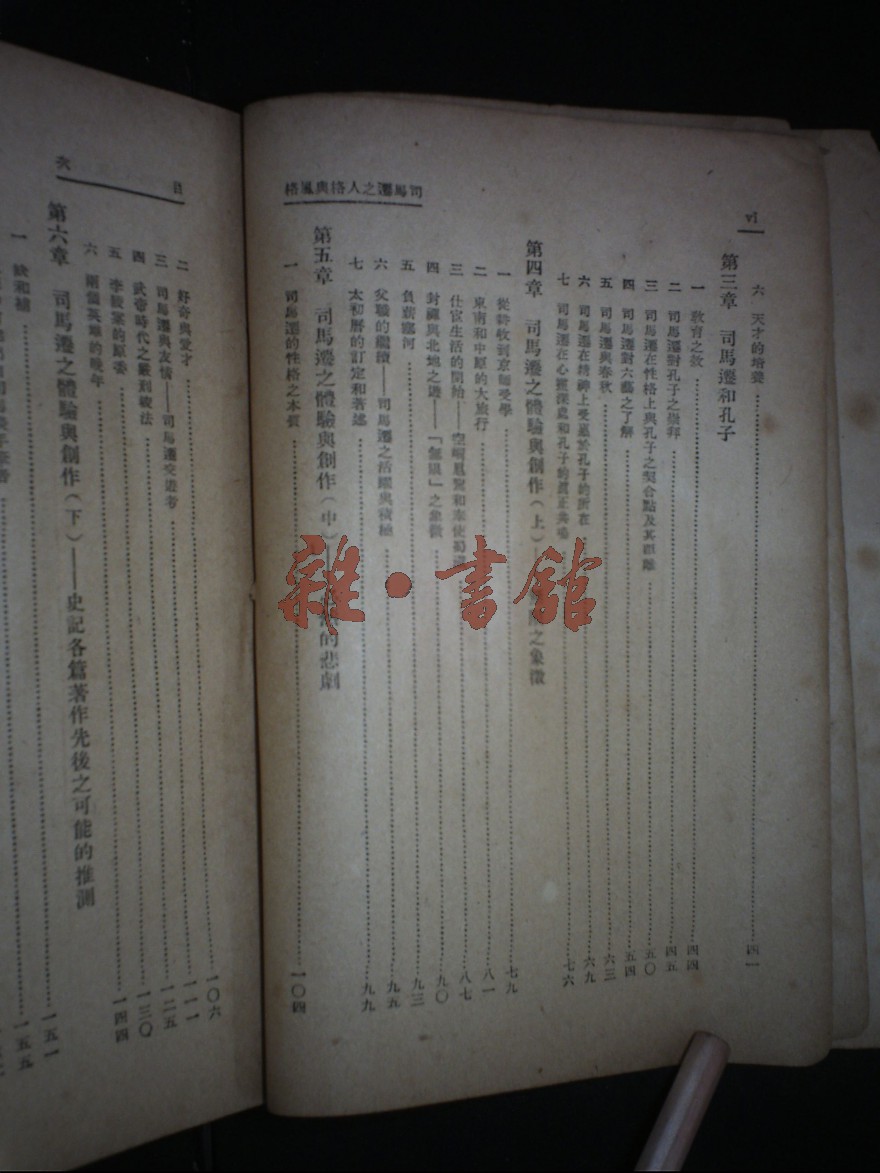 vi
司馬遷之人格與風格
六 天才的培養 四一
第三章 司馬遷和孔子
一 敎育之效 四四
二 司馬遷對孔子之崇拜 四五
三 司馬遷在性格上與孔子之契合點及其距離 五〇
四 司馬遷對六藝之了解 五四
五 司馬遷與春秋 六三
六 司馬遷在精神上受惠於孔子的所在 六九
七 司馬遷在心靈深處和孔子的眞正共鳴 七六
第四章 司馬遷之體驗與創作(上) 之象徵
一 從耕牧到京師受學 七九
二 東南和中原的大旅行 八一
三 仕宦生活的開始——空峒扈駕和奉使 八七
四 封禪與北地之遊——「無風」之象徵 九〇
五 負薪塞河 九三
六 父職的繼續——司馬遷之活躍與積極 九五
七 太初曆的訂定和著述 九九
第五章 司馬遷之體驗與創作(中) 的悲劇
一 司馬遷的性格之本質 一〇四
目次
二 好奇與愛才 一〇六
三 司馬遷與友情——司馬遷交遊考 一一一
四 武帝時代之嚴刑峻法 一二五
五 李陵案的原委 一三〇
六 兩個英雄的晚年 一四四
第六章 司馬遷之體驗與創作(下)——史記各篇著作先後之可能的推測
一 缺和補 一五一
一五五
雜·書館